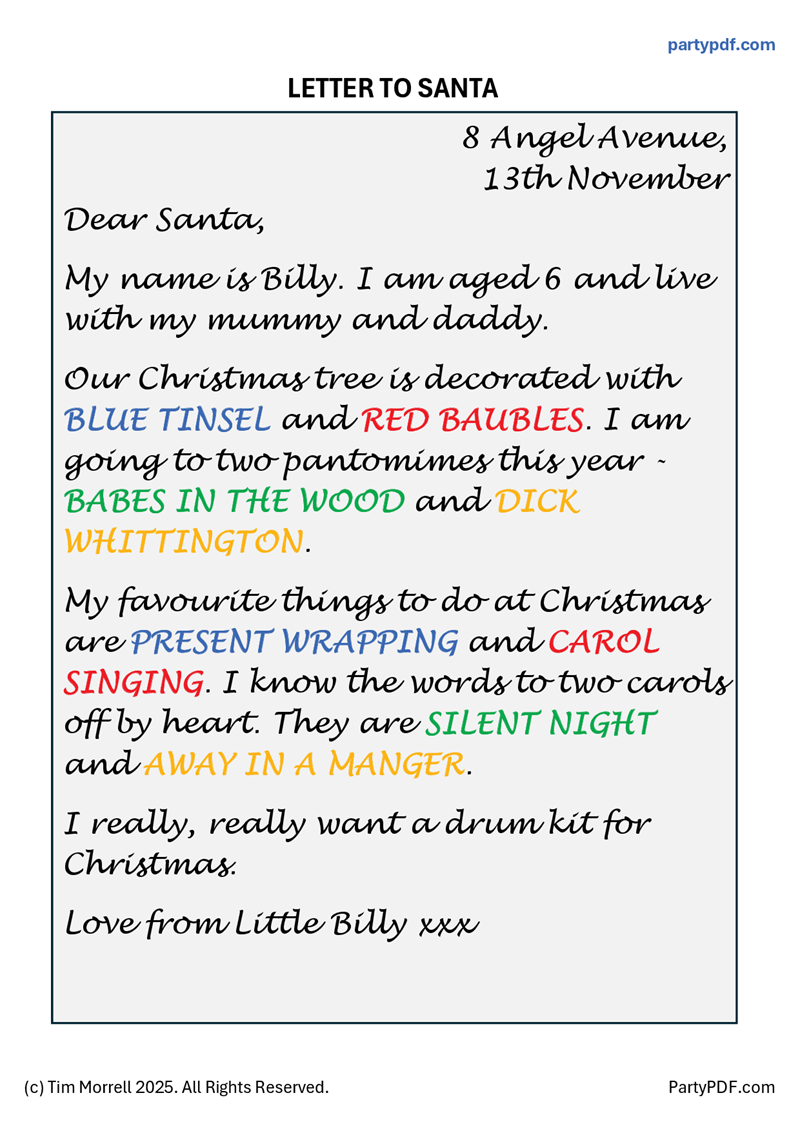 partypdf.com
LETTER TO SANTA
8 Angel Avenue,
13th November
Dear Santa,
My name is Billy. I am aged 6 and live
with my mummy and daddy.
Our Christmas tree is decorated with
BLUE TINSEL and RED BAUBLES. I am
going to two pantomimes this year -
BABES IN THE WOOD and DICK
WHITTINGTON.
My favourite things to do at Christmas
are PRESENT WRAPPING and CAROL
SINGING. I know the words to two carols
off by heart. They are SILENT NIGHT
and AWAY IN A MANGER.
I really, really want a drum kit for
Christmas.
Love from Little Billy xxx
(c) Tim Morrell 2025. All Rights Reserved.
PartyPDF.com